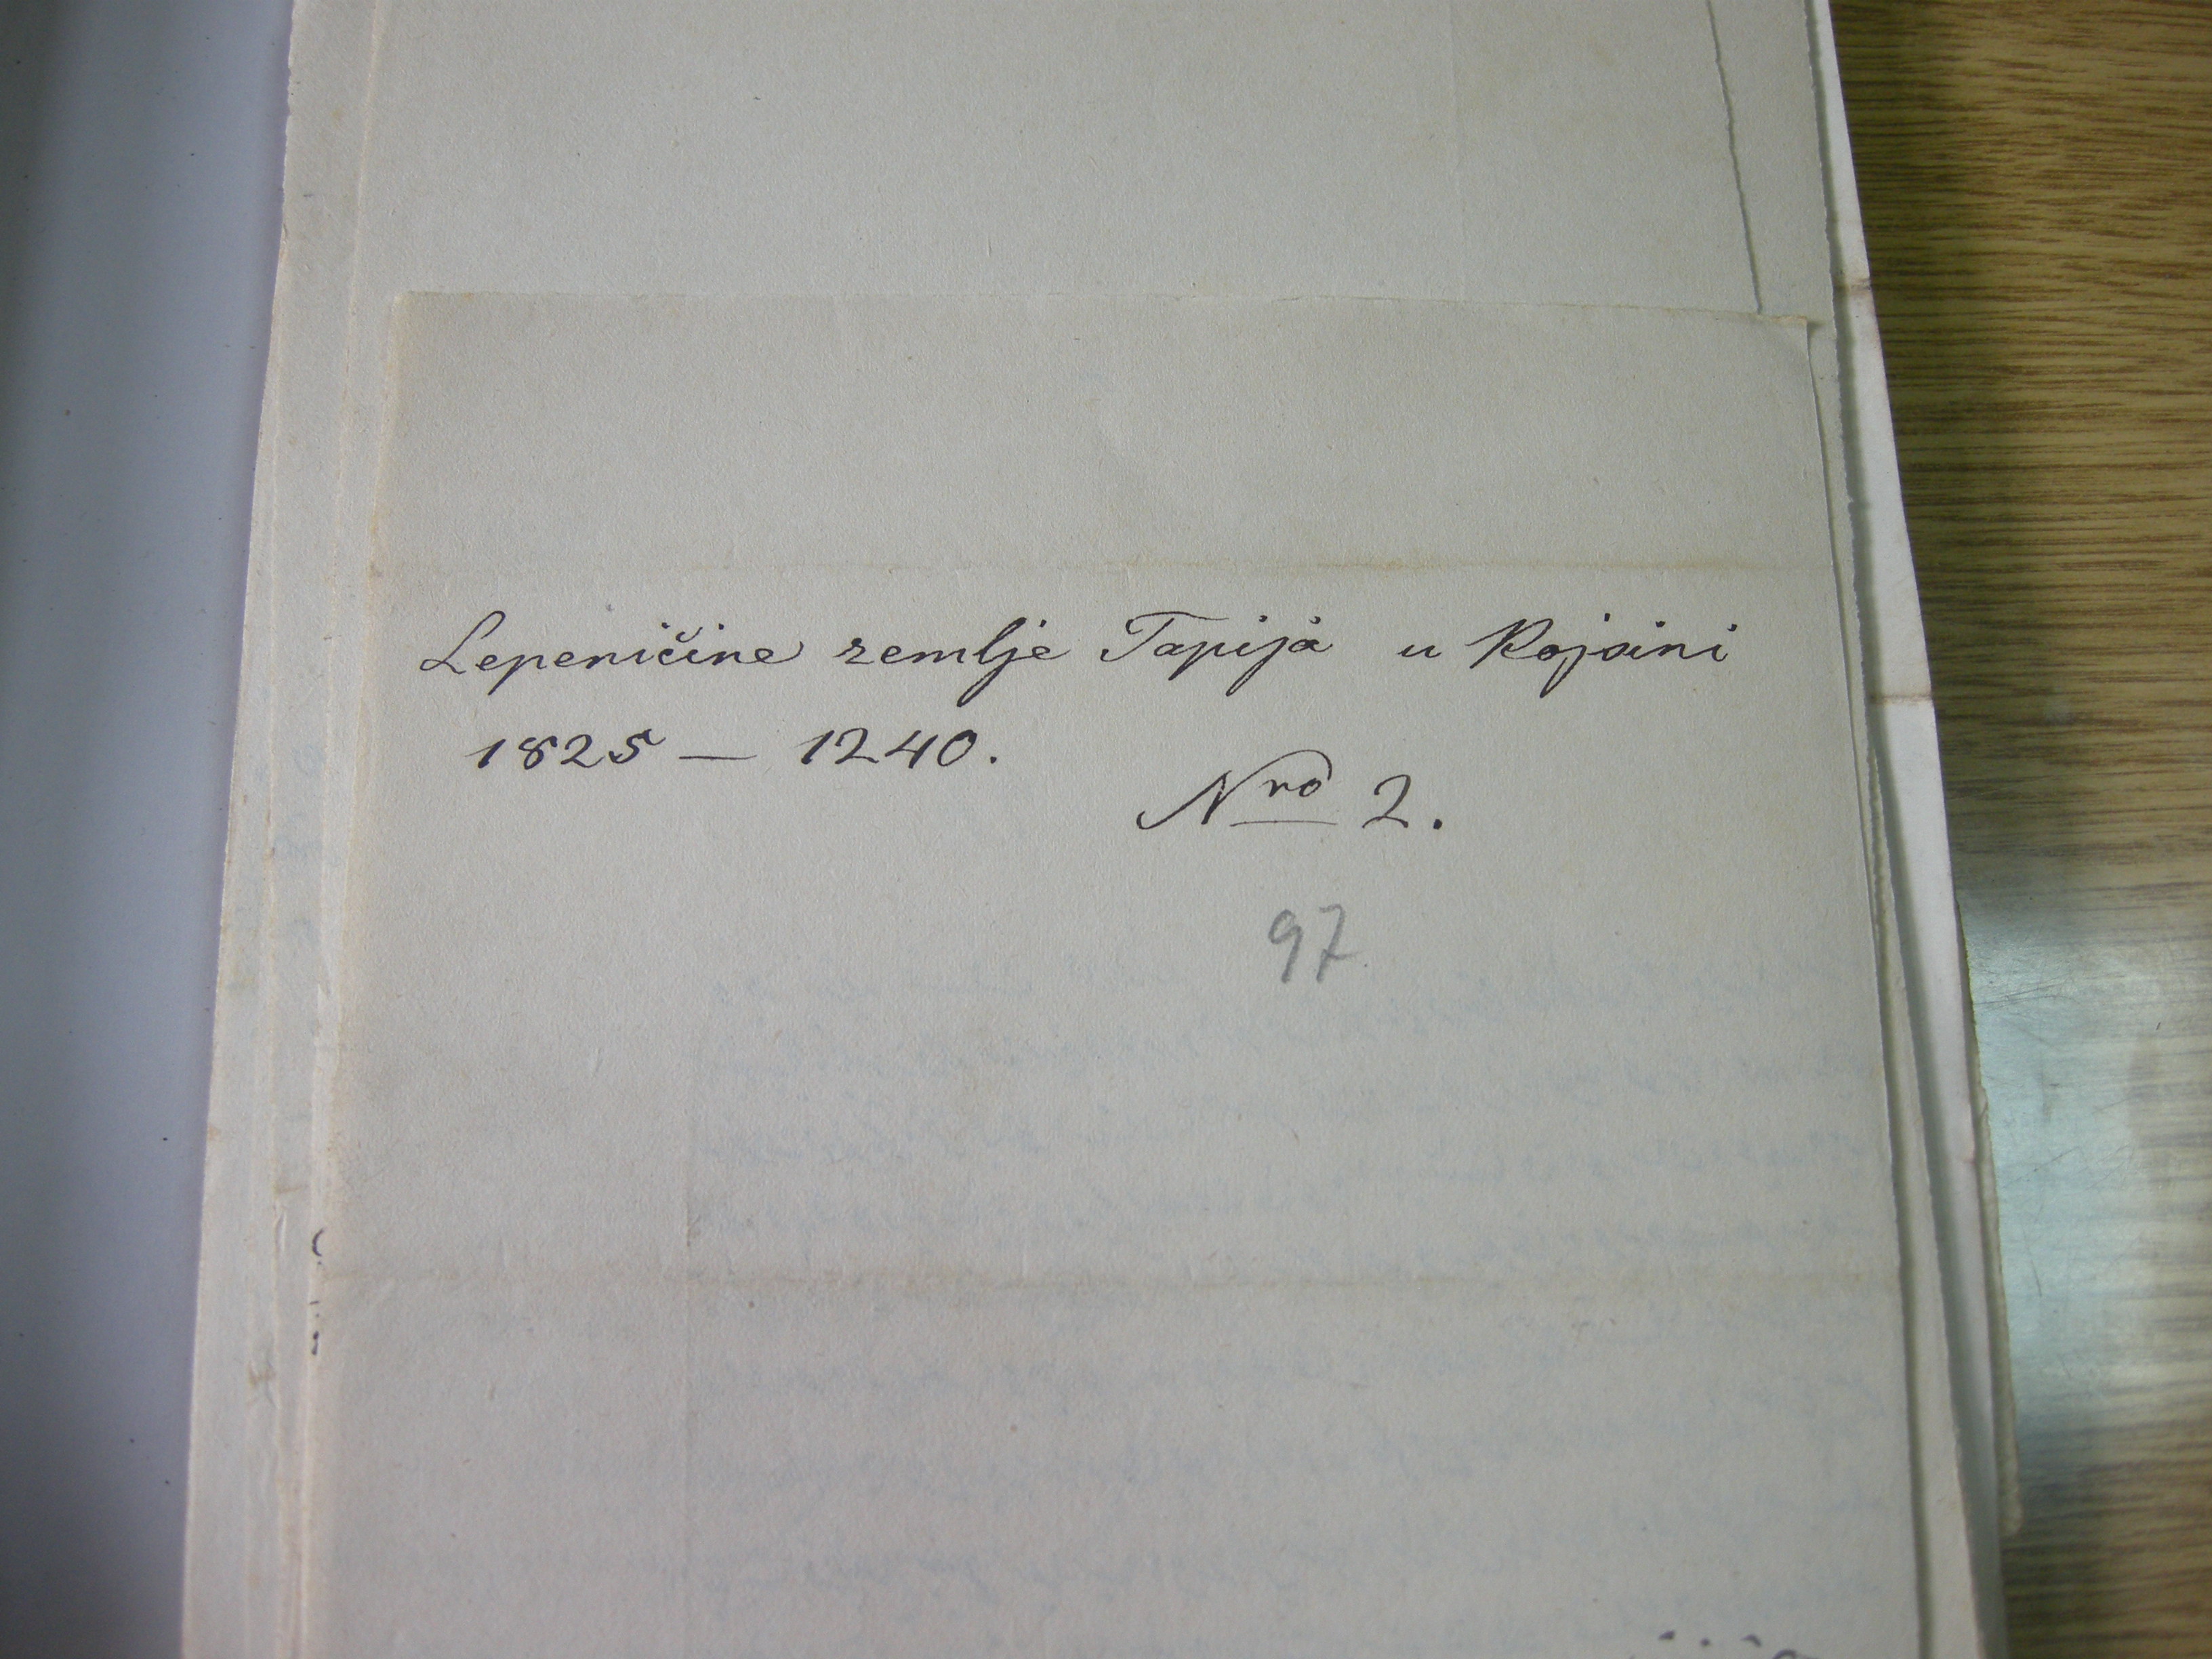 Lepeničine zemlje Tapija u Rojsini
1825 — 1240.
Nro 2.
97